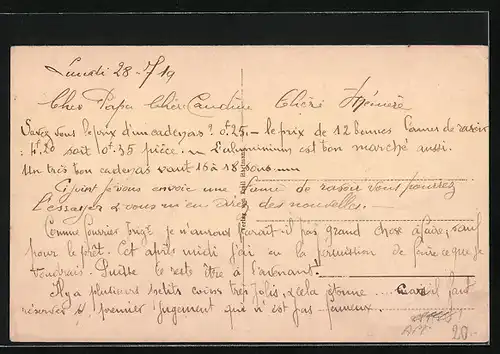 Lundi 28-7/19
Cher Papa Chère Claudine Chère Mémère
Savez vous le prix d'un cadenas? 0f25 — le prix de 12 bonnes lames de rasoir
: 4f20 soit 0f35 pièce. — L'aluminium est bon marché aussi.
Un très bon cadenas vaut 16 à 18 sous —
Ci joint je vous envoie une lame de rasoir vous pourrez
l'essayer & vous m'en direz des nouvelles. —
Comme je n'aurai parait-il pas grand chose à faire, sauf
pour le prêt. Cet après midi j'ai eu la permission de faire ce que je
voudrais. Puisse le reste être à l'avenant!
Il y a plusieurs petits coins très jolis, & cela étonne .... mais il faut
réserver le premier jugement qui n'est pas fameux.
20.-